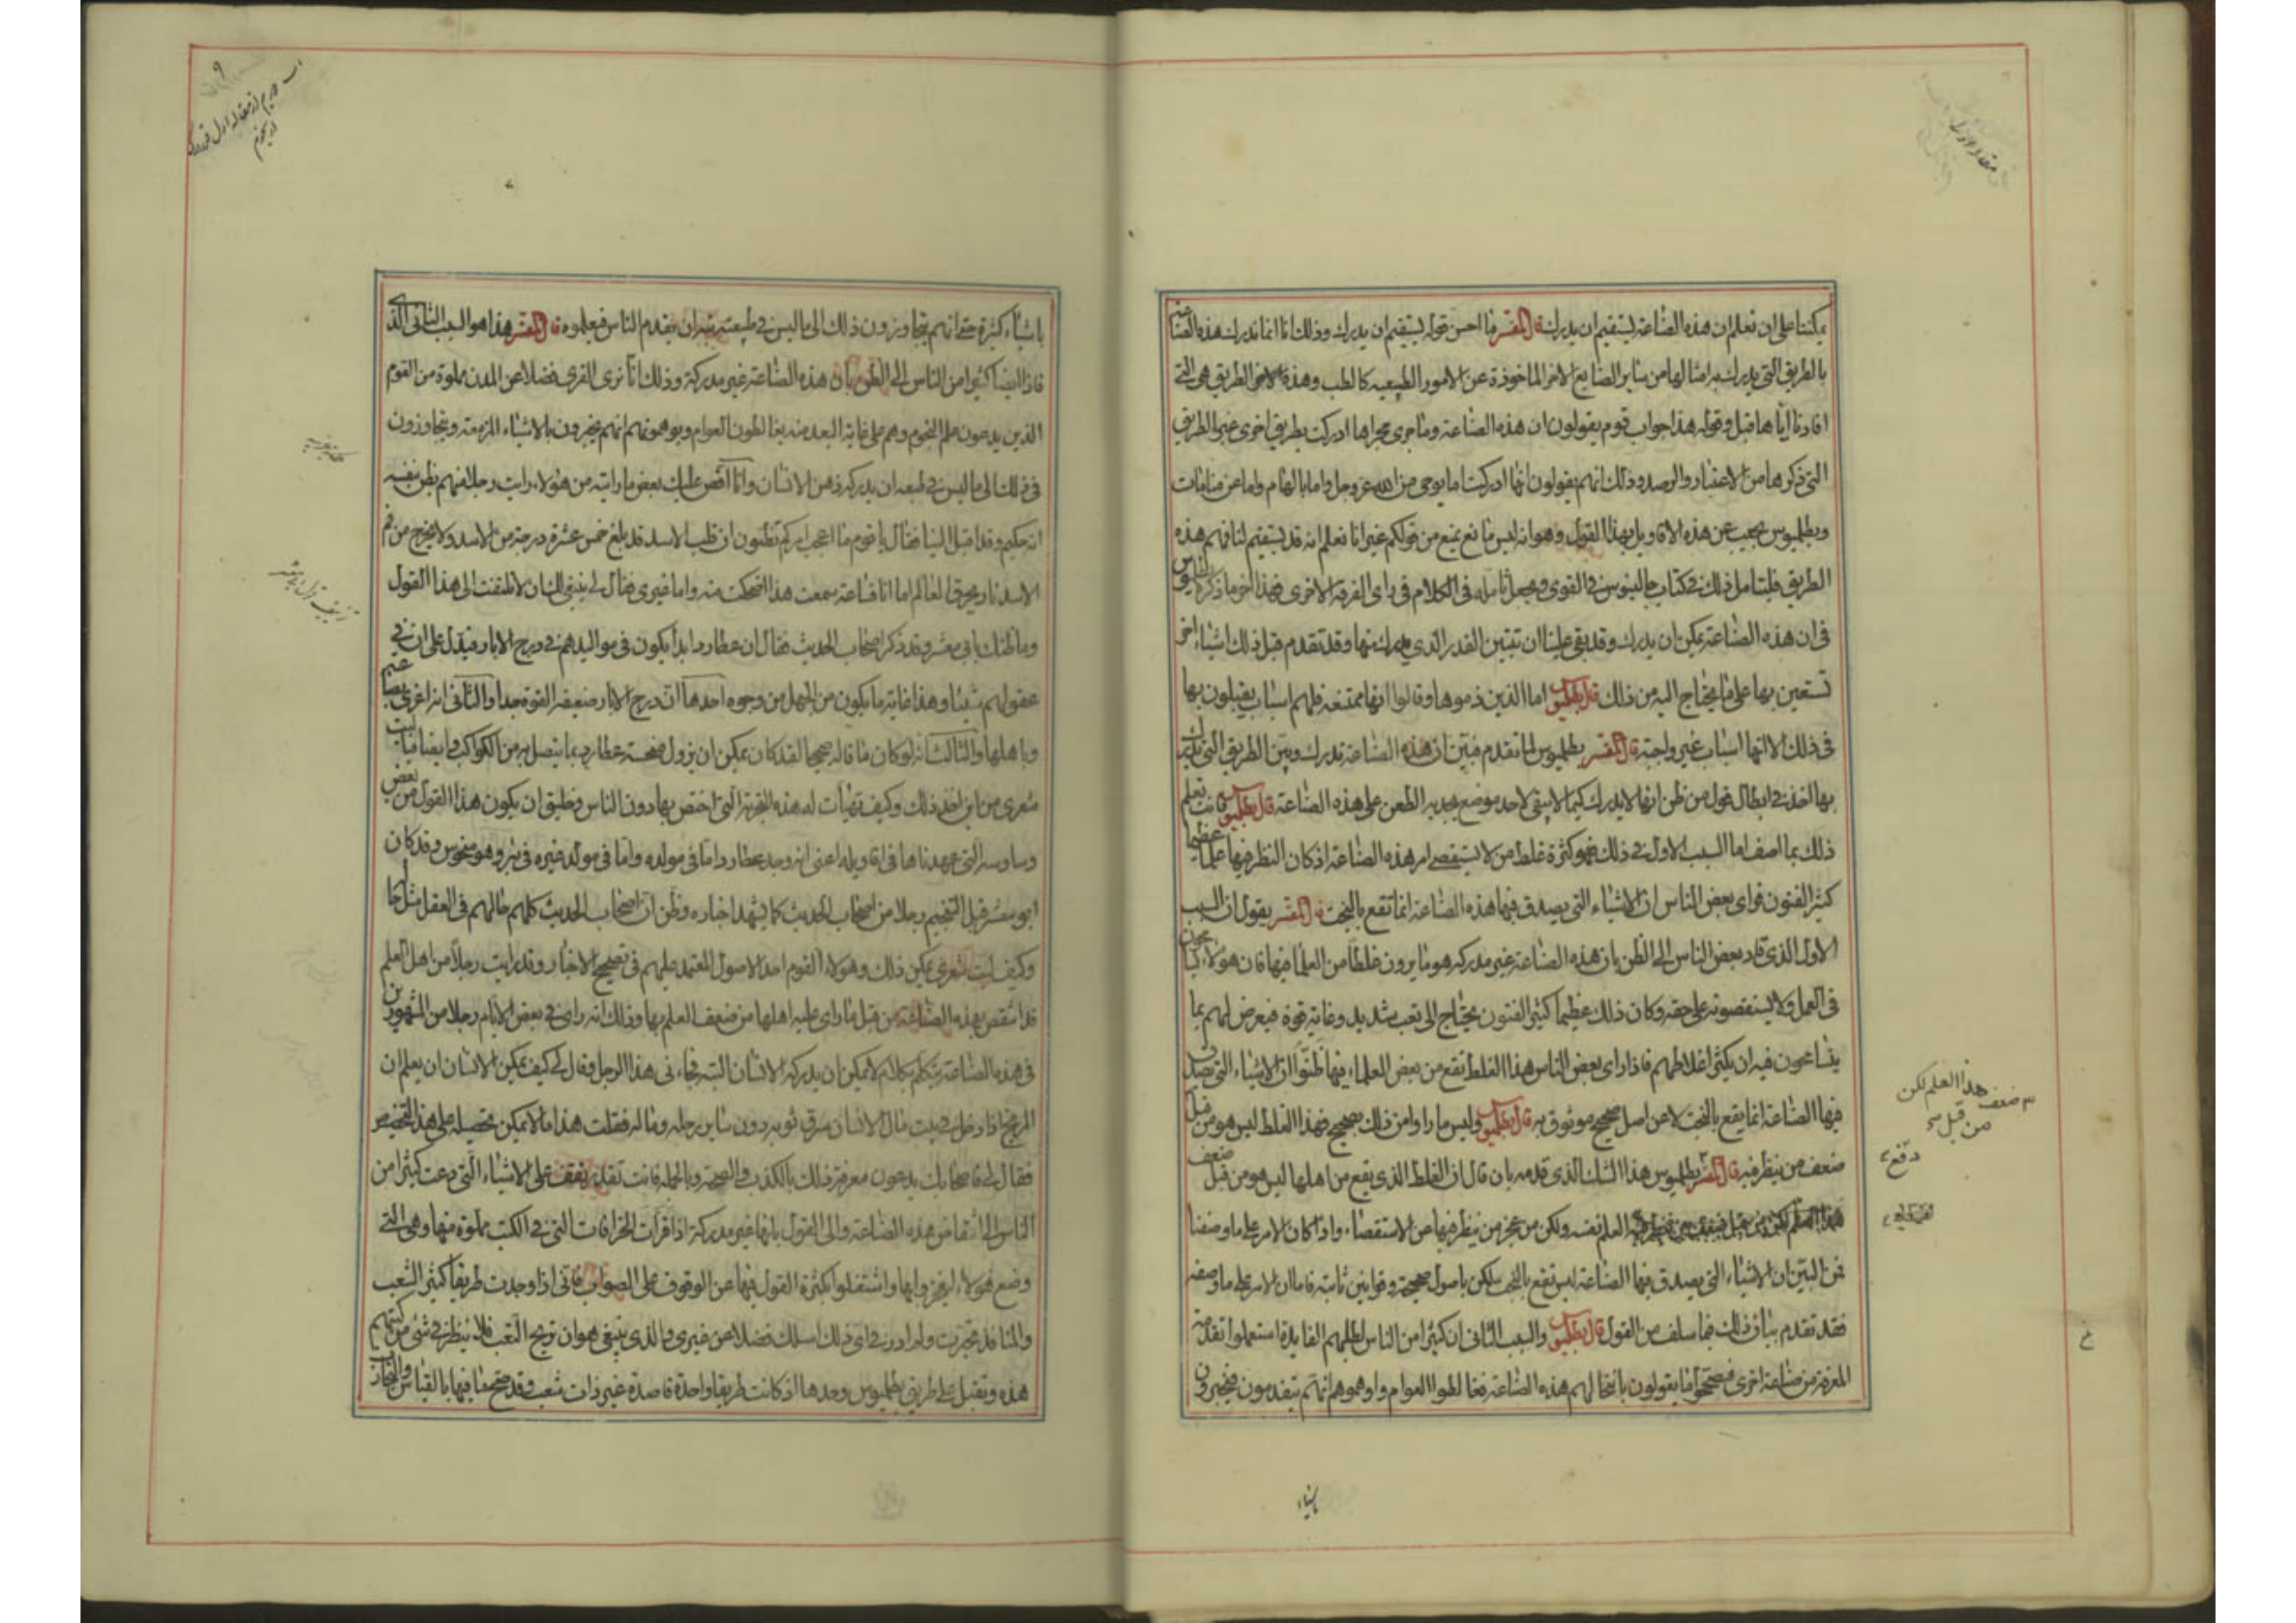 يمكننا على ان نعلم ان هذه الصناعة يستقيم ان يدرك قال المفسر ما احسن قوله يستقيم ان يدرك وذلك انا انما ندرك هذه الصناعة
بالطريق التي يدرك بها امثالها من ساير الصنايع الاخر الماخوذة عن الامور الطبيعيه كالطب وهذه الطريق هي التي
افادنا اياها قبل وقوله هذا جواب قوم يقولون ان هذه الصناعة وما جرى مجراها ادركت بطريق اخرى غير الطريق
التي ذكرها من الاعتبار والرصد وذلك انهم يقولون انها ادركت اما بوحى من الله عز وجل واما بالهام واما عن منامات
وبطلميوس يجيب عن هذه الاقاويل بهذا القول وهو انه ليس مانع يمنع من قولكم غير انا نعلم انه قد يستقيم لنا فهم هذه
الطريق فليتامل ذلك في كتاب جالينوس في القوى فهذا اخر ما ذكره بطلميوس
في ان هذه الصناعة يمكن ان يدرك وقد بقى علينا ان تبين القدر الذي يدرك منها وقد تقدم قبل ذلك اشياء اخر
تستعين بها على ما يحتاج اليه من ذلك قال بطلميوس اما الذين ذموها وقالوا انها ممتنعة فلهم اسباب يقبلون بها
في ذلك الا انها اسباب غير واجبة قال المفسر بطلميوس لما تقدم فبين ان هذه الصناعة تدرك وبين الطريق التي تدرك
بها اخذ في ابطال قول من ظن انها لا يدرك كيما لا يبقى لاحد موضع يجد به الطعن على هذه الصناعة قال بطلميوس فانت تعلم
ذلك بما اصف اما السبب الاول في ذلك فهو كثرة غلط من لا يستقصى امر هذه الصناعة اذ كان النظر فيها علما عظيما
كثير الفنون فراى بعض الناس ان الاشياء التي يصدق فيها هذه الصناعة انما تقع بالبخت قال المفسر يقول ان السبب
الاول الذي قاد بعض الناس الى الظن بان هذه الصناعة غير مدركه هو ما يرون غلطا من العلما فيها فان هولاء
في العمل ولا يستقصونه على حقه وكان ذلك عظيما كثير الفنون يحتاج الى تعب شديد وغاية قوة فيعرض لهم بما
يتسامحون فيه ان يكثر اغلاطهم فاذا راى بعض الناس هذا الغلط تقع من بعض العلماء فيها ظنوا ان الاشياء التي يصدق
فيها الصناعة انما يقع بالبخت لا عن اصل صحيح موثوق به قال بطلميوس وليس ما راوا من ذلك بصحيح فهذا الغلط ليس هو من قبل
ضعف من ينظر فيه قال المفسر بطلميوس هذا الشك الذي قدمه بان قال ان الغلط الذي يقع من اهلها ليس هو من قبل ضعف
العلم نفسه ولكن من عجز من ينظر فيها من الاستقصاء واذا كان الامر على ما وصفنا
فمن البين ان الاشياء التي يصدق فيها الصناعة ليس تقع بالبخت لكن باصول صحيحة وقوانين ثابتة فاما ان الامر على ما وصفه
فقد تقدم بيان ذلك فيما سلف من القول قال بطلميوس والسبب الثاني ان كثيرا من الناس لطلبهم الفايدة استعملوا تقدمة
المعرفة من صناعة اخرى هذه الصناعة فغالطوا العوام واوهموهم انهم يتقدمون فيخبرون
هذا العلم لكن
ضعف
من قبل
باشياء
باشياء كثيرة حتى انهم يتجاوزون ذلك الى ما ليس في طبيعته ان يقدم الناس فيعلموه قال المفسر هذا هو السبب الثاني الذي
قاد ايضا كثيرا من الناس الى الظن بان هذه الصناعة غير مدركة وذلك انا نرى القرى فضلا عن المدن مملوة من القوم
الذين يدعون علم النجوم وهم على غاية البعد منه يغالطون العوام ويوهمونهم انهم يخبرون بالاشياء المزمعة ويتجاوزون
في ذلك الى ما ليس في طبعه ان يدركه ذهن الانسان وانا اقص عليك بعض ما رايته من هولاء رايت رجلا منهم يظن بنفسه
انه حكيم وقد اقبل الينا فقال يا قوم ما اعجب امركم تظنون ان قلب الاسد قد بلغ خمس عشرة درجة من الاسد ولا يخرج من فم
الاسد نار يحرق العالم اما انا فساعة سمعت هذا ضحكت منه واما غيرى فقال لى ينبغى لك ان لا تلتفت الى هذا القول
وما ظنك بابى معشر وقد ذكر اصحاب الحديث فقال ان عطارد ابدا يكون في مواليدهم في درج الابار فيدل على ان في
عقولهم شيئا وهذا غاية ما يكون من الجهل من وجوه احدها ان درج الابار ضعيفة القوة جدا والثاني
وباهلها والثالث انه لو كان ما قاله صحيحا لقد كان يمكن ان يزول منحسة عطارد بما يتصل به من الكواكب وايضا فيا ليت
شعرى من اين اخذ ذلك وكيف تهيأت له هذه التجربة التي اختص بها دون الناس وخليق ان يكون هذا القول من بعض
وساوسه التي عهدناها في اقاويله اعنى انه وجد عطارد اما في مولده واما في مولد غيره في بئر وهو منحوس وقد كان
ابو معشر قبل التنجيم رجلا من اصحاب الحديث كما يشهد اخباره وظن ان اصحاب الحديث كلهم حالهم في العقل مثل حاله
وكيف ليت شعرى يمكن ذلك وهولاء القوم احد الاصول المعتمد عليهم في تصحيح الاخبار وقد رايت رجلا من اهل العلم
قد انتقص بهذه الصناعة من قبل ما راى عليه اهلها من ضعف العلم بها وذلك انه راى في بعض الايام رجلا من المشهورين
في هذه الصناعة يتكلم بكلام لا يمكن ان يدركه الانسان البتة فجاءنى هذا الرجل وقال لى كيف يمكن الانسان ان يعلم ان
المريخ اذا دخل في بيت مال الانسان سرق ثوبه دون ساير رحله وماله فقلت هذا ما لا يمكن تحصيله على هذا التخصيص
فقال لى فاصحابك يدعون معرفة ذلك بالكذب والصحة وبالجملة فانت تقدر تقف على الاشياء التي دعت كثيرا من
الناس الى انتقاص هذه الصناعة والى القول بانها غير مدركة اذا قرات الخرافات التي في الكتب مملوة منها وهى التي
وضع هولاء ليغزوا بها واشتغلوا بكثرة القول فيها عن الوقوف على الصواب فانى اذا وجدت طريقا كثير الشعب
والمنا قد تحيرت ولم ادر في اى ذلك اسلك فضلا عن غيرى فالذى ينبغى هو ان تريح التعب فلا ينظر في شئ من كتبهم
هذه وتقبل على طريق بطلميوس وحدها اذ كانت طريقا واحدة قاصدة غير ذات شعب وقد صح معنا فيها بالقياس والتجارب